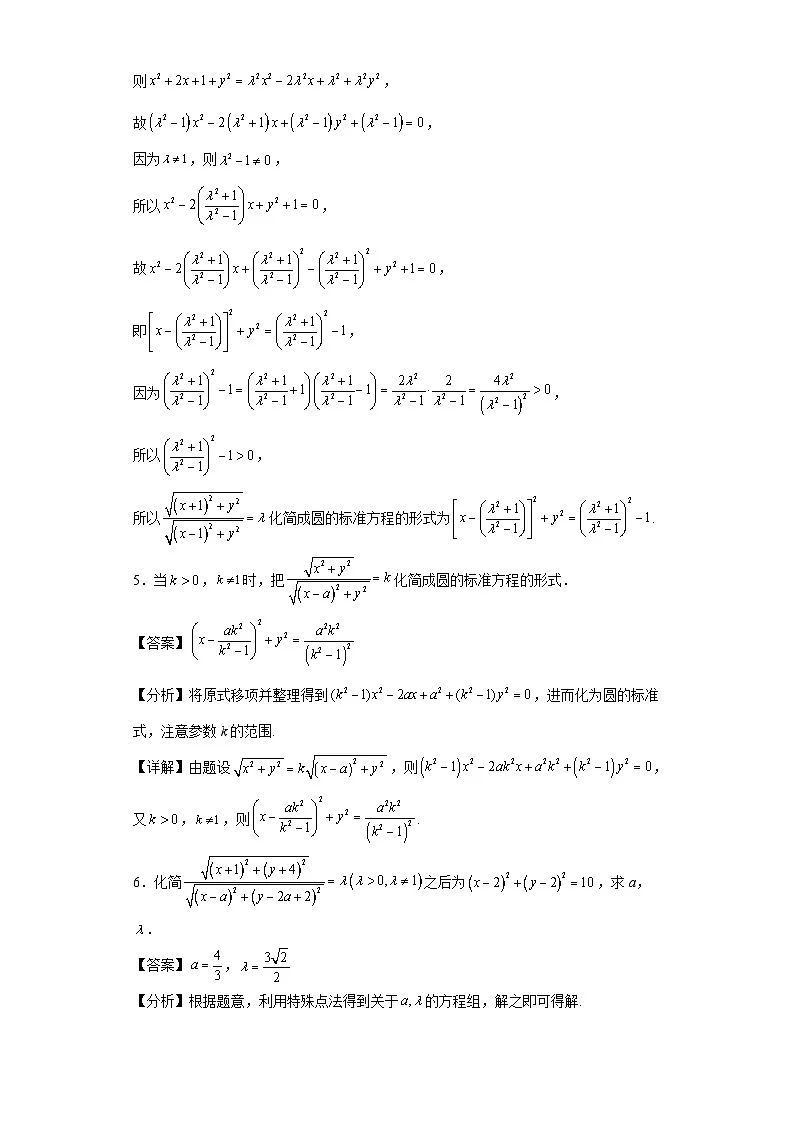 则 x² + 2x + 1 + y² = λ²x² − 2λ²x + λ² + λ²y²，
故 (λ² − 1)x² − 2(λ² + 1)x + (λ² − 1)y² + (λ² − 1) = 0，
因为 λ ≠ 1，则 λ² − 1 ≠ 0，
所以 x² − 2((λ² + 1)/(λ² − 1))x + y² + 1 = 0，
故 x² − 2((λ² + 1)/(λ² − 1))x + ((λ² + 1)/(λ² − 1))² − ((λ² + 1)/(λ² − 1))² + y² + 1 = 0，
即 [x − ((λ² + 1)/(λ² − 1))]² + y² = ((λ² + 1)/(λ² − 1))² − 1，
因为 ((λ² + 1)/(λ² − 1))² − 1 = ((λ² + 1)/(λ² − 1) + 1)((λ² + 1)/(λ² − 1) − 1) = 2λ²/(λ² − 1) · 2/(λ² − 1) = 4λ²/(λ² − 1)² > 0，
所以 ((λ² + 1)/(λ² − 1))² − 1 > 0，
所以 √((x+1)² + y²)/√((x−1)² + y²) = λ 化简成圆的标准方程的形式为 [x − ((λ² + 1)/(λ² − 1))]² + y² = ((λ² + 1)/(λ² − 1))² − 1.
5．当 k > 0，k ≠ 1 时，把 √(x² + y²)/√((x − a)² + y²) = k 化简成圆的标准方程的形式．
【答案】(x − ak²/(k² − 1))² + y² = a²k²/(k² − 1)²
【分析】将原式移项并整理得到 (k² − 1)x² − 2ax + a² + (k² − 1)y² = 0，进而化为圆的标准
式，注意参数 k 的范围.
【详解】由题设 √(x² + y²) = k√((x − a)² + y²)，则 (k² − 1)x² − 2ak²x + a²k² + (k² − 1)y² = 0，
又 k > 0，k ≠ 1，则 (x − ak²/(k² − 1))² + y² = a²k²/(k² − 1)².
6．化简 √((x+1)² + (y+4)²)/√((x − a)² + (y − 2a + 2)²) = λ(λ > 0, λ ≠ 1) 之后为 (x − 2)² + (y − 2)² = 10，求 a，
λ．
【答案】a = 4/3，λ = 3√2/2
【分析】根据题意，利用特殊点法得到关于 a, λ 的方程组，解之即可得解.